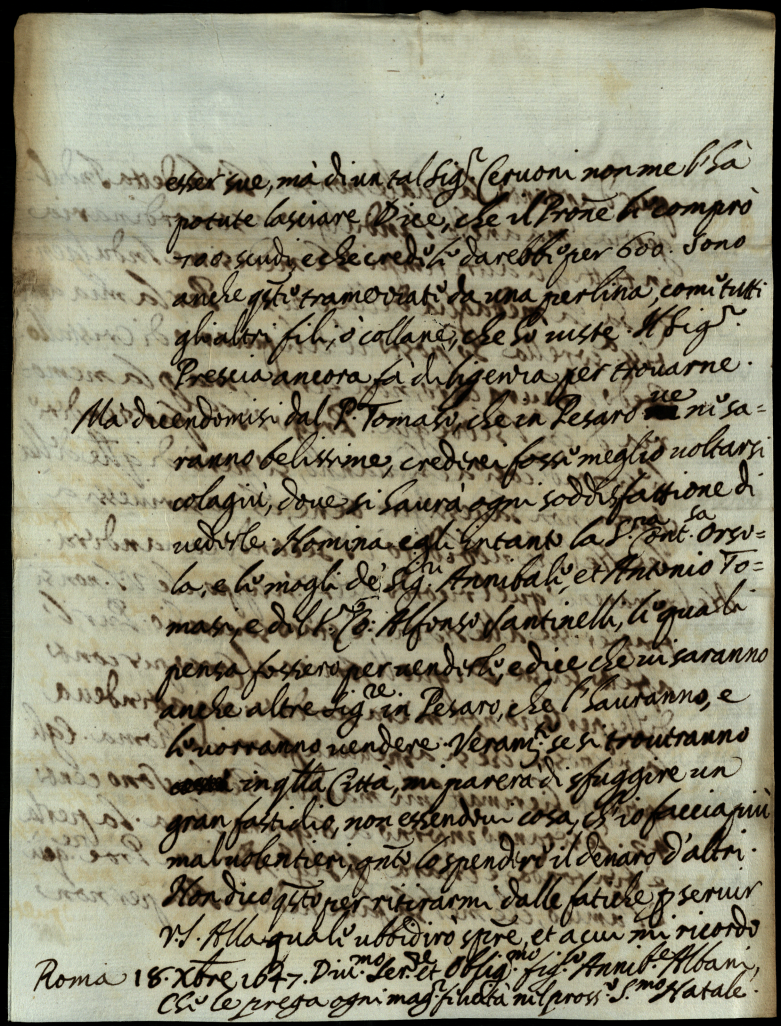 esser sue, mà di un tal Sig.r Cervoni non me l'hà
potute lasciare. Dice, che il Prõne le comprò
scudi e che crede le darebbe per 600. Sono
anche q̃ste tramezate da una perlina, come tutti
gli altri fili, ò collane, che hò viste. Il Sig.r
Prescia ancora fà diligenza per trovarne.
Mà dicendomisi dal P. Tomasi, che in Pesaro ve ne sa=
ranno belissime, crederei fosse meglio voltarsi
colagiù, dove si haurà ogni soddisfattione di
vederle. Nomina egli intanto la S.ra Cont.sa Orso=
la, e le mogli de' Sig.ri Annibale, et Antonio To=
masi, e del S.r Co: Alfonso Santinelli, le quali
pensa fossero per venderle, e dice che vi saranno
anche altre Sig.re in Pesaro, che l'hauranno, e
le vorranno vendere. Veram.te se si troveranno
in q̃lla Città, mi parerà di sfuggire un
gran fastidio, non essendovi cosa, ch'io faccia più
mal volentieri, q̃nto lo spendere il denaro d'altri.
Non dico q̃sto per ritirarmi dalle fatiche p servir
V.S. Alla quale ubbidirò sp̃re, et a cui mi ricordo
Roma 18. Xbre 1647. Div.mo Ser.re et Oblig.mo fig.lo Annib.e Albani,
Che le prega ogni mag.r felicità nel pross.o S.mo Natale.